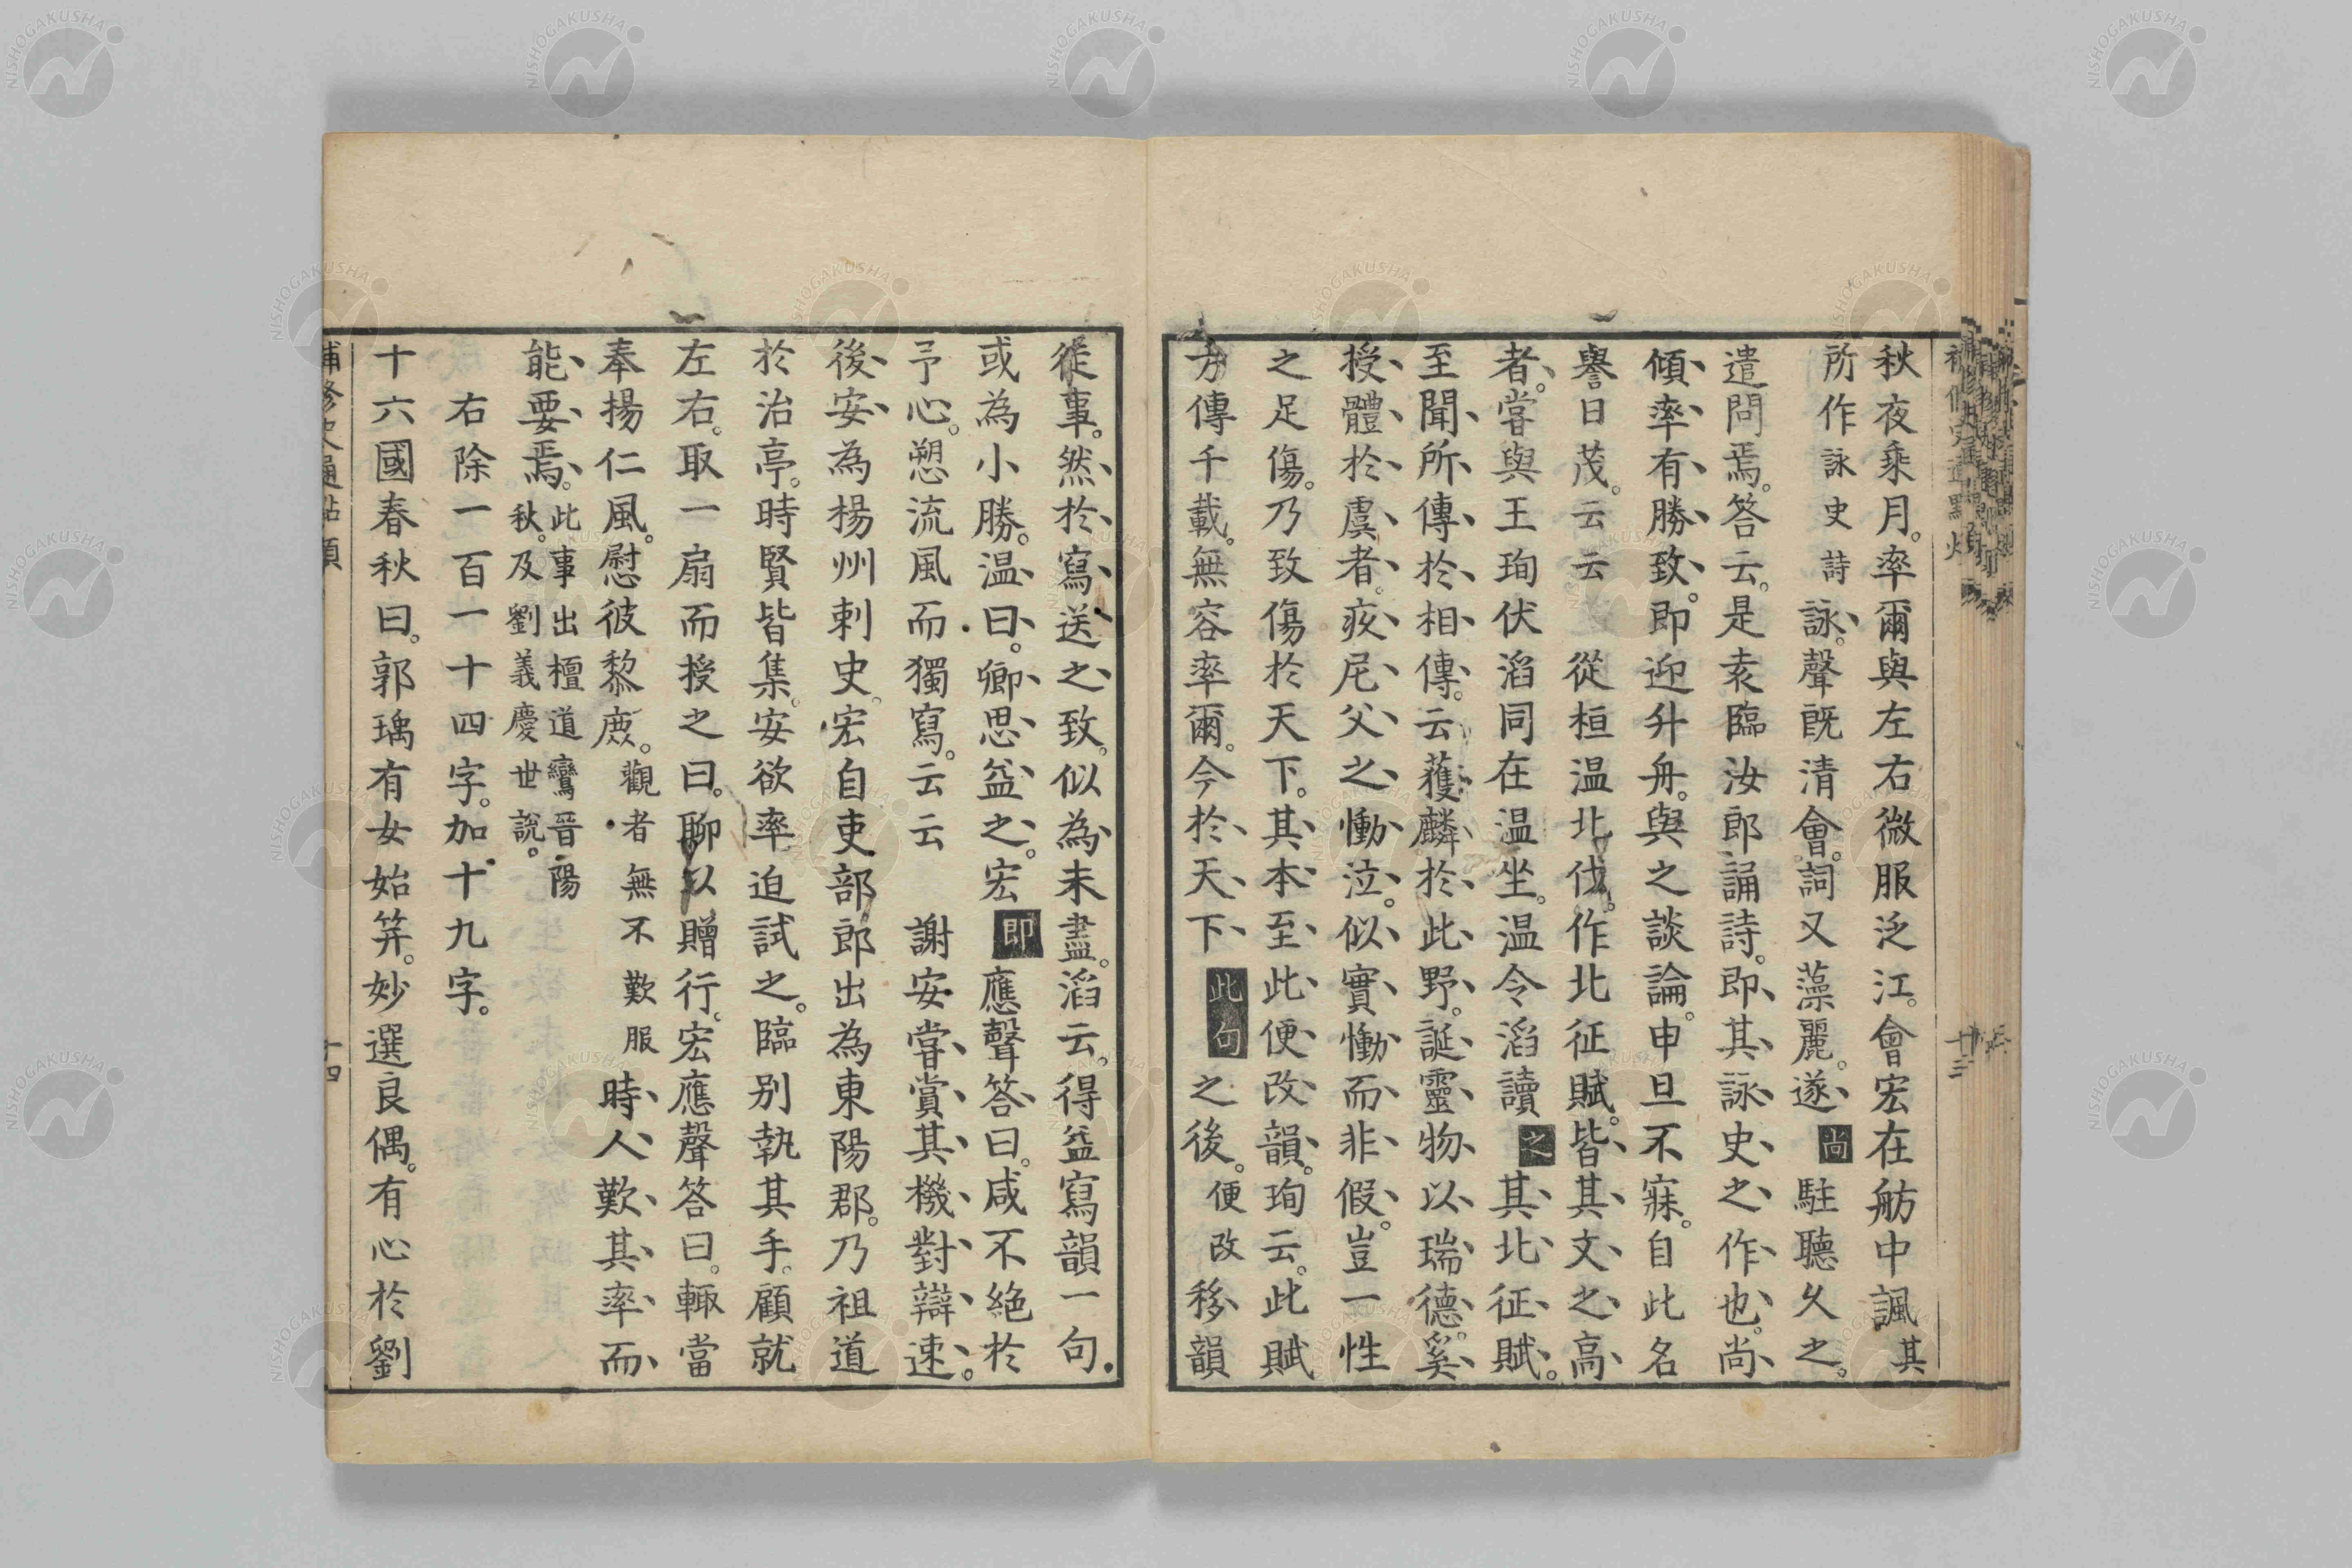 秋夜乘月。率爾與左右微服泛江。會宏在舫中諷其
所作詠史詩詠。聲既清會。詞又藻麗。遂尚駐聽久之。
遣問焉。答云。是袁臨汝郎誦詩。即其詠史之作也。尚
傾率有勝致。即迎升舟。與之談論。申旦不寐。自此名
譽日茂。云云 從桓温北伐。作北征賦。皆其文之高
者。嘗與王珣伏滔同在温坐。温令滔讀之其北征賦。
至聞所傳於相傳。云蒦麟於此野。誕靈物以瑞德。奚
授體於虞者。疚尼父之慟泣。似實慟而非假。豈一性
之足傷。乃致傷於天下。其本至此便改韻。珣云。此賦
方傳千載。無容率爾。今於天下此句之後。便改移韻
從事。然於寫送之致。似為未盡。滔云。得益寫韻一句。
或為小勝。温曰。卿思益之。宏即應聲答曰。咸不絕於
予心。愬流風而獨寫。云云 謝安嘗賞其機對辯速。
後安為楊州刺史。宏自吏部郎出為東陽郡。乃祖道
於治亭。時賢皆集。安欲率迫試之。臨別執其手。顧就
左右。取一扇而授之曰。聊以贈行。宏應聲答曰。輙當
奉揚仁風。慰彼黎庶。觀者無不歎服時人歎其率而
能要焉。此事出檀道鸞晉陽
秋。及劉義慶世說。
右除一百一十四字。加十九字。
十六國春秋曰。郭瑀有女始笄。妙選良偶。有心於劉
十四